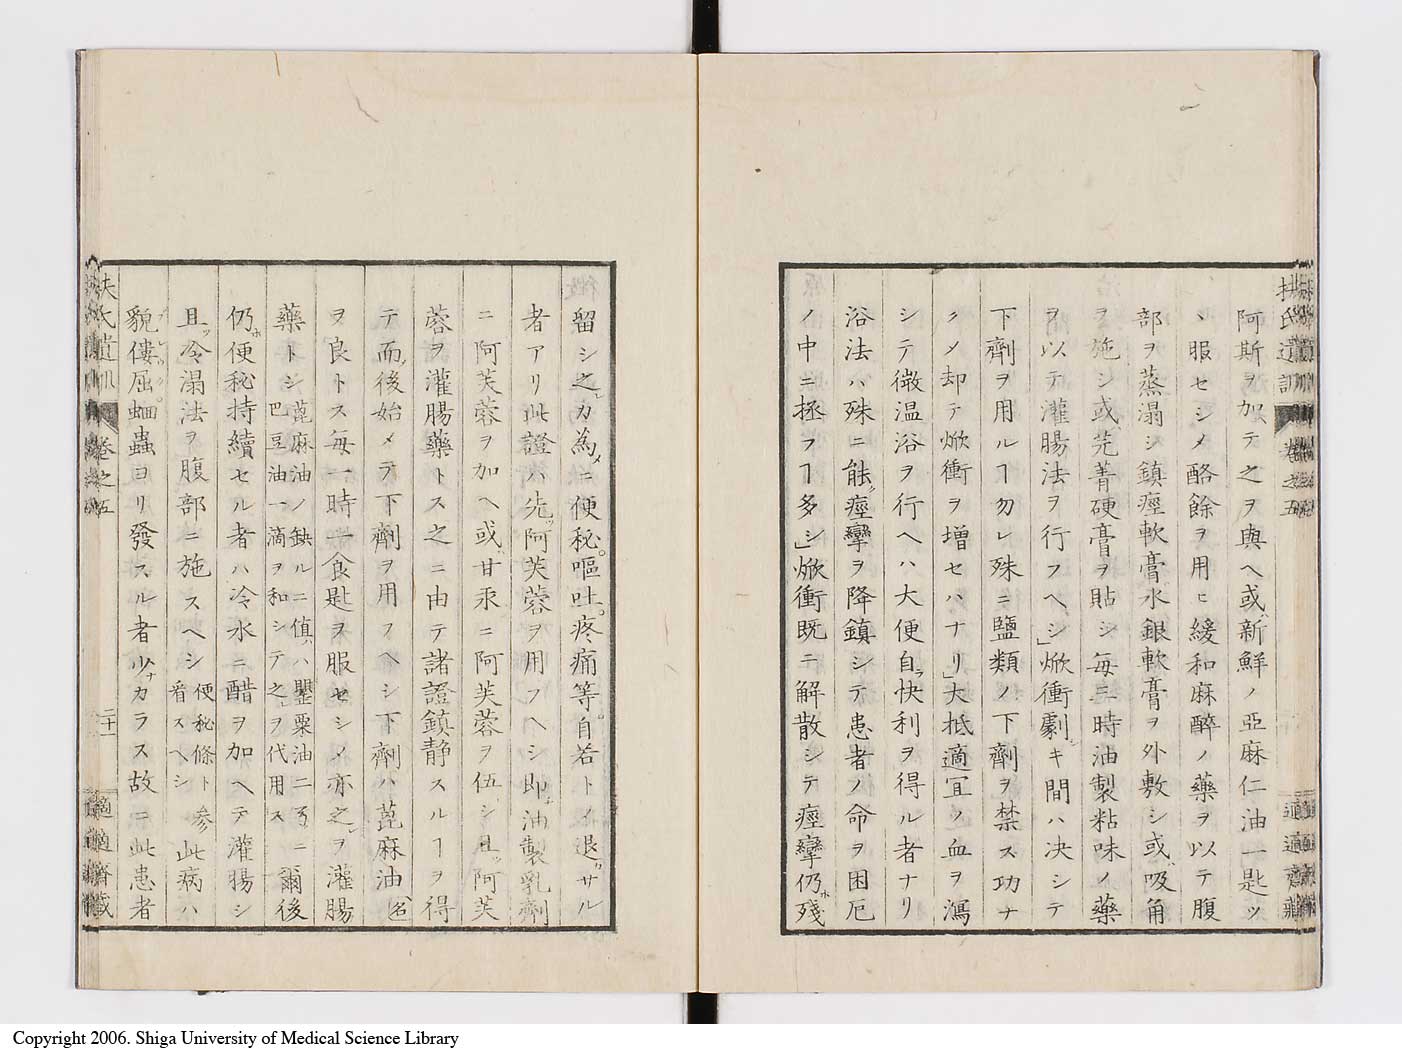 扶氏遺訓 卷之五 適適齋藏
阿斯ヲ加テ之ヲ與ヘ或新鮮ノ亞麻仁油一匙ツ
ヽ服セシメ酪餘ヲ用ヒ緩和麻醉ノ藥ヲ以テ腹
部ヲ蒸溻シ鎮痙軟膏水銀軟膏ヲ外敷シ或吸角
ヲ施シ或芫菁硬膏ヲ貼シ毎二時油製粘味ノ藥
ヲ以テ灌腸法ヲ行フヘシ」焮衝劇キ間ハ决シテ
下劑ヲ用ルヿ勿レ殊ニ鹽類ノ下劑ヲ禁ス功ナ
クメ却テ焮衝ヲ増セハナリ」大抵適宜ノ血ヲ瀉
シテ微温浴ヲ行ヘハ大便自快利ヲ得ル者ナリ
浴法ハ殊ニ能痙攣ヲ降鎮シテ患者ノ命ヲ困厄
ノ中ニ拯フヿ多シ」焮衝既ニ解散シテ痙攣仍殘
留シ之カ為ニ便秘。嘔吐。疼痛等。自若トメ退サル
者アリ此證ハ先阿芙蓉ヲ用フヘシ即油製乳劑
ニ阿芙蓉ヲ加ヘ或甘汞ニ阿芙蓉ヲ伍シ且阿芙
蓉ヲ灌腸藥トス之ニ由テ諸證鎮静スルヿヲ得
テ而後始メテ下劑ヲ用フヘシ下劑ハ蓖麻油
ヲ良トス毎一時一食匙ヲ服セシメ亦之ヲ灌腸
藥トシ蓖麻油ノ缺ルニ值ハ罌粟油二ヲニ巴豆油一滴ヲ和シテ之ヲ代用ス爾後
仍便秘持續セル者ハ冷水ニ醋ヲ加ヘテ灌腸シ
且冷溻法ヲ腹部ニ施スヘシ便秘條ト参看スヘシ此病ハ
貌僂屈蛔蟲ヨリ發スル者少カラス故ニ此患者
扶氏遺訓 卷之五 二十一 適適齋藏
Copyright 2006. Shiga University of Medical Science Library